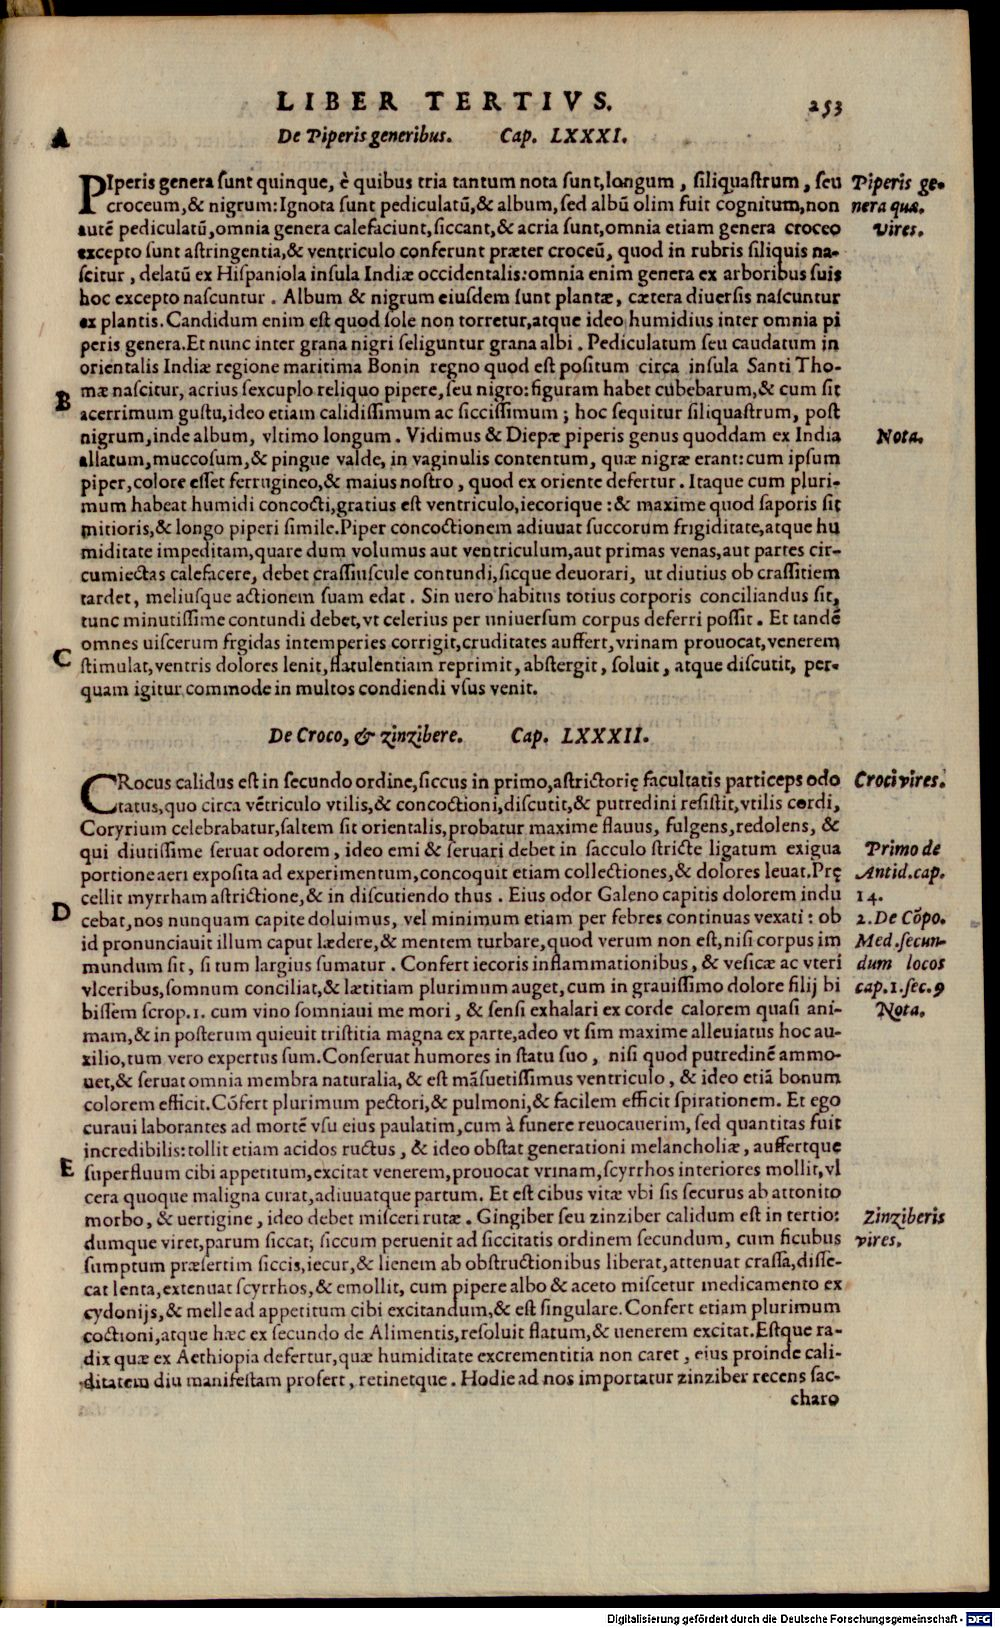 LIBER TERTIVS. 253
A De Piperis generibus. Cap. LXXXI.
PIperis genera sunt quinque, è quibus tria tantum nota sunt, longum, siliquastrum, seu Piperis ge-
croceum, & nigrum: Ignota sunt pediculatū, & album, sed albū olim fuit cognitum, non nera quæ.
autē pediculatū, omnia genera calefaciunt, siccant, & acria sunt, omnia etiam genera croceo vires.
excepto sunt astringentia, & ventriculo conferunt præter croceū, quod in rubris siliquis na-
scitur, delatū ex Hispaniola insula Indiæ occidentalis: omnia enim genera ex arboribus suis
hoc excepto nascuntur. Album & nigrum eiusdem sunt plantæ, cætera diuersis nascuntur
ex plantis. Candidum enim est quod sole non torretur, atque ideo humidius inter omnia pi
peris genera. Et nunc inter grana nigri seliguntur grana albi. Pediculatum seu caudatum in
orientalis Indiæ regione maritima Bonin regno quod est positum circa insula Santi Tho-
mæ nascitur, acrius sexcuplo reliquo pipere, seu nigro: figuram habet cubebarum, & cum sit
B acerrimum gustu, ideo etiam calidissimum ac siccissimum; hoc sequitur siliquastrum, post
nigrum, inde album, vltimo longum. Vidimus & Diepæ piperis genus quoddam ex India Nota.
allatum, muccosum, & pingue valde, in vaginulis contentum, quæ nigræ erant: cum ipsum
piper, colore esset ferrugineo, & maius nostro, quod ex oriente defertur. Itaque cum pluri-
mum habeat humidi concocti, gratius est ventriculo, iecorique: & maxime quod saporis sit
mitioris, & longo piperi simile. Piper concoctionem adiuuat succorum frigiditate, atque hu
miditate impeditam, quare dum volumus aut ventriculum, aut primas venas, aut partes cir-
cumiectas calefacere, debet crassiuscule contundi, sicque deuorari, ut diutius ob crassitiem
tardet, meliusque actionem suam edat. Sin uero habitus totius corporis conciliandus sit,
tunc minutissime contundi debet, vt celerius per uniuersum corpus deferri possit. Et tandē
omnes uiscerum frgidas intemperies corrigit, cruditates auffert, vrinam prouocat, venerem
C stimulat, ventris dolores lenit, flatulentiam reprimit, abstergit, soluit, atque discutit, per-
quam igitur commode in multos condiendi vsus venit.
De Croco, & zinzibere. Cap. LXXXII.
CRocus calidus est in secundo ordine, siccus in primo, astrictorię facultatis particeps odo Croci vires.
tatus, quo circa vētriculo vtilis, & concoctioni, discutit, & putredini resistit, vtilis cordi,
Coryrium celebrabatur, saltem sit orientalis, probatur maxime flauus, fulgens, redolens, &
qui diutissime seruat odorem, ideo emi & seruari debet in sacculo stricte ligatum exigua Primo de
portione aeri exposita ad experimentum, concoquit etiam collectiones, & dolores leuat. Prę Antid. cap.
cellit myrrham astrictione, & in discutiendo thus. Eius odor Galeno capitis dolorem indu 14.
D cebat, nos nunquam capite doluimus, vel minimum etiam per febres continuas vexati: ob 2. De Cōpo.
id pronunciauit illum caput lædere, & mentem turbare, quod verum non est, nisi corpus im Med. secun-
mundum sit, si tum largius sumatur. Confert iecoris inflammationibus, & vesicæ ac vteri dum locos
vlceribus, somnum conciliat, & lætitiam plurimum auget, cum in grauissimo dolore filij bi cap. 1. sec. 9
bissem scrop. 1. cum vino somniaui me mori, & sensi exhalari ex corde calorem quasi ani- Nota.
mam, & in posterum quieuit tristitia magna ex parte, adeo vt sim maxime alleuiatus hoc au-
xilio, tum vero expertus sum. Conseruat humores in statu suo, nisi quod putredinē ammo-
uet, & seruat omnia membra naturalia, & est māsuetissimus ventriculo, & ideo etiā bonum
colorem efficit. Cōfert plurimum pectori, & pulmoni, & facilem efficit spirationem. Et ego
curaui laborantes ad mortē vsu eius paulatim, cum à funere reuocauerim, sed quantitas fuit
incredibilis: tollit etiam acidos ructus, & ideo obstat generationi melancholiæ, auffertque
E superfluum cibi appetitum, excitat venerem, prouocat vrinam, scyrrhos interiores mollit, vl
cera quoque maligna curat, adiuuatque partum. Et est cibus vitæ vbi sis securus ab attonito
morbo, & uertigine, ideo debet misceri rutæ. Gingiber seu zinziber calidum est in tertio: Zinziberis
dumque viret, parum siccat; siccum peruenit ad siccitatis ordinem secundum, cum ficubus vires.
sumptum præsertim siccis, iecur, & lienem ab obstructionibus liberat, attenuat crassa, disse-
cat lenta, extenuat scyrrhos, & emollit, cum pipere albo & aceto miscetur medicamento ex
cydonijs, & melle ad appetitum cibi excitandum, & est singulare. Confert etiam plurimum
coctioni, atque hæc ex secundo de Alimentis, resoluit flatum, & uenerem excitat. Estque ra-
dix quæ ex Aethiopia defertur, quæ humiditate excrementitia non caret, eius proinde cali-
ditatem diu manifestam profert, retinetque. Hodie ad nos importatur zinziber recens sac-
charo
Digitalisierung gefördert durch die Deutsche Forschungsgemeinschaft - DFG